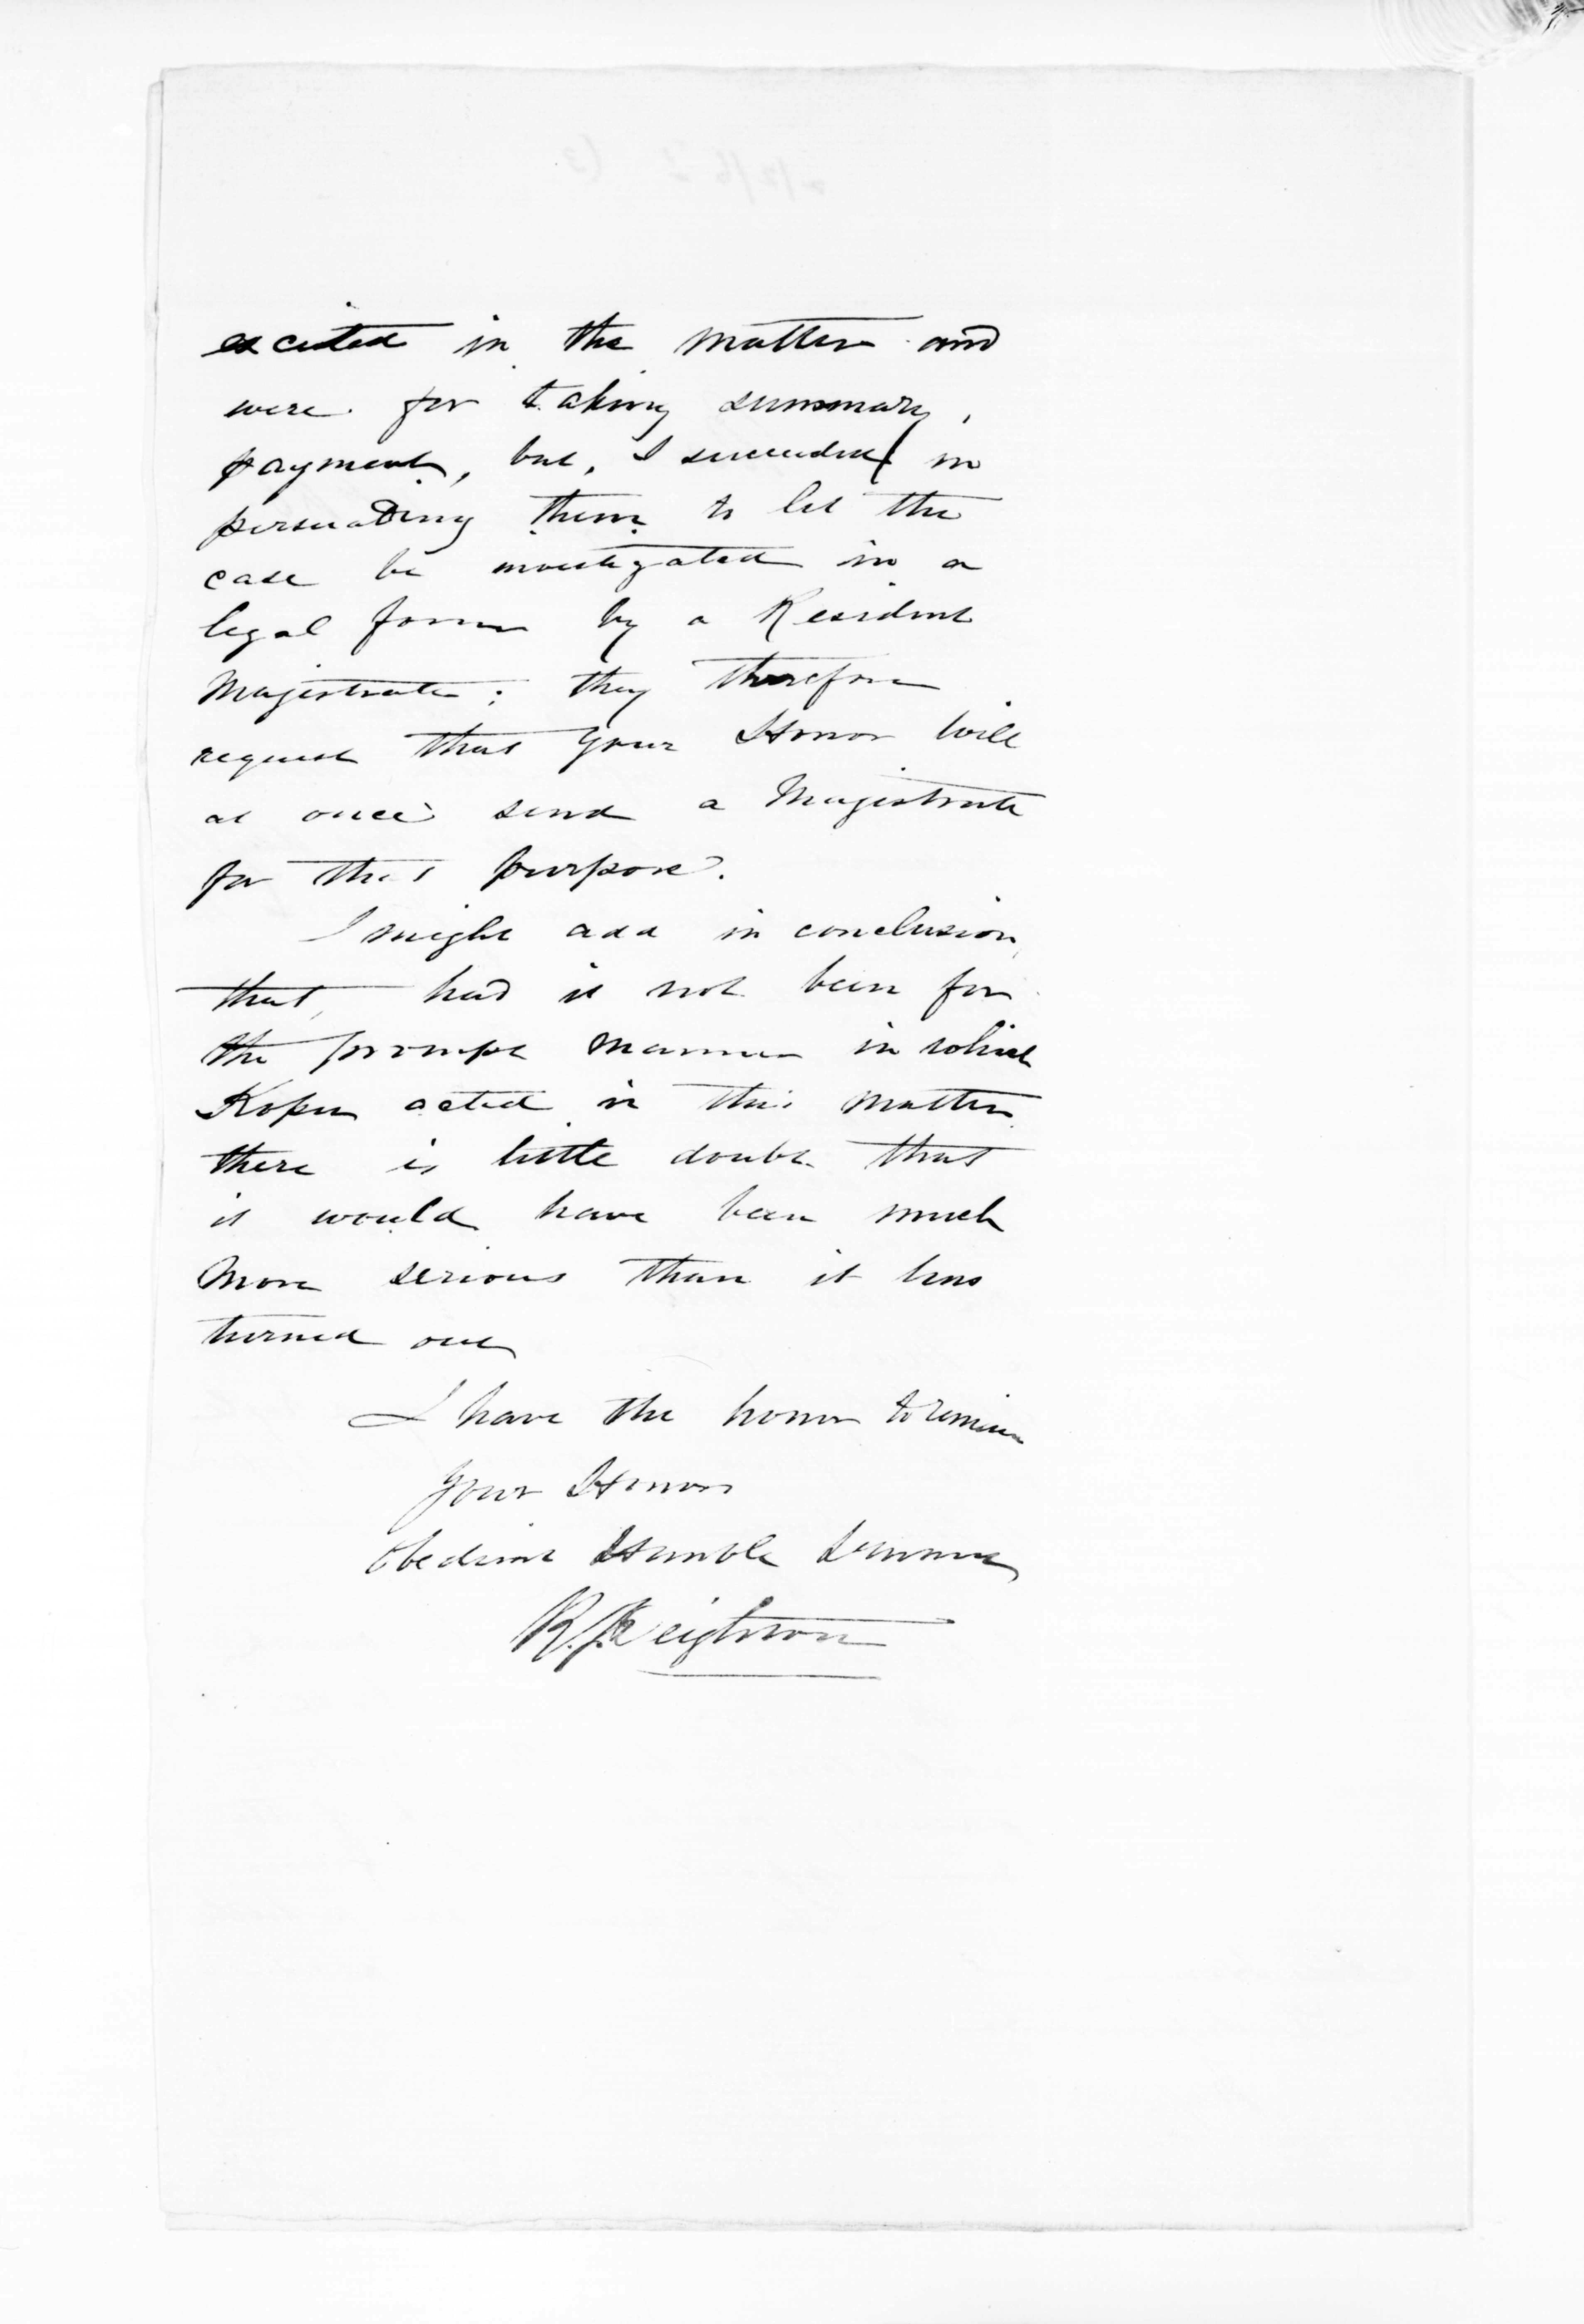 excited in the matter and
were for taking summary
payment, but, I succeeded in
persuading them to let the
case be investigated in a
legal form by a Resident
Magistrate; they therefore
request that Your Honor will
at once send a Magistrate
for that purpose.
I might add in conclusion,
that, had it not been for
the prompt manner in which
Kopu acted in this matter
there is little doubt that
it would have been much
more serious than it has
turned out
I have the honor to remain
Your Honors
Obedient Humble Servant